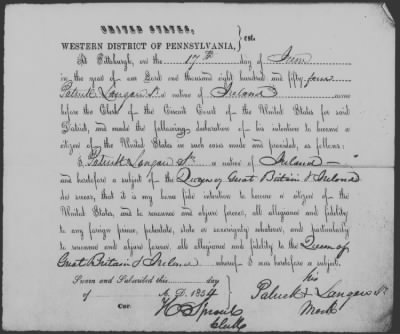 UNITED STATES,
WESTERN DISTRICT OF PENNSYLVANIA, } sct.
At Pittsburgh, on the 17th day of June
in the year of our Lord one thousand eight hundred and fifty four
Patrick Langan Sr. a native of Ireland came
before the Clerk of the Circuit Court of the United States for said
District, and made the following declaration of his intention to become a
citizen of the United States, in such cases made and provided, as follows:
I Patrick Langan Sr. a native of Ireland
and heretofore a subject of the Queen of Great Britain & Ireland
do swear, that it is my bona fide intention to become a citizen of the
United States, and to renounce and abjure forever, all allegiance and fidelity
to any foreign prince, potentate, state or sovereignty whatever, and particularly
to renounce and abjure forever, all allegiance and fidelity to the Queen of
Great Britain & Ireland whereof I was heretofore a subject.
Sworn and Subscribed this day
of A. D. 1854
his
Patrick + Langan Sr.
Mark
H Sproul
Clerk